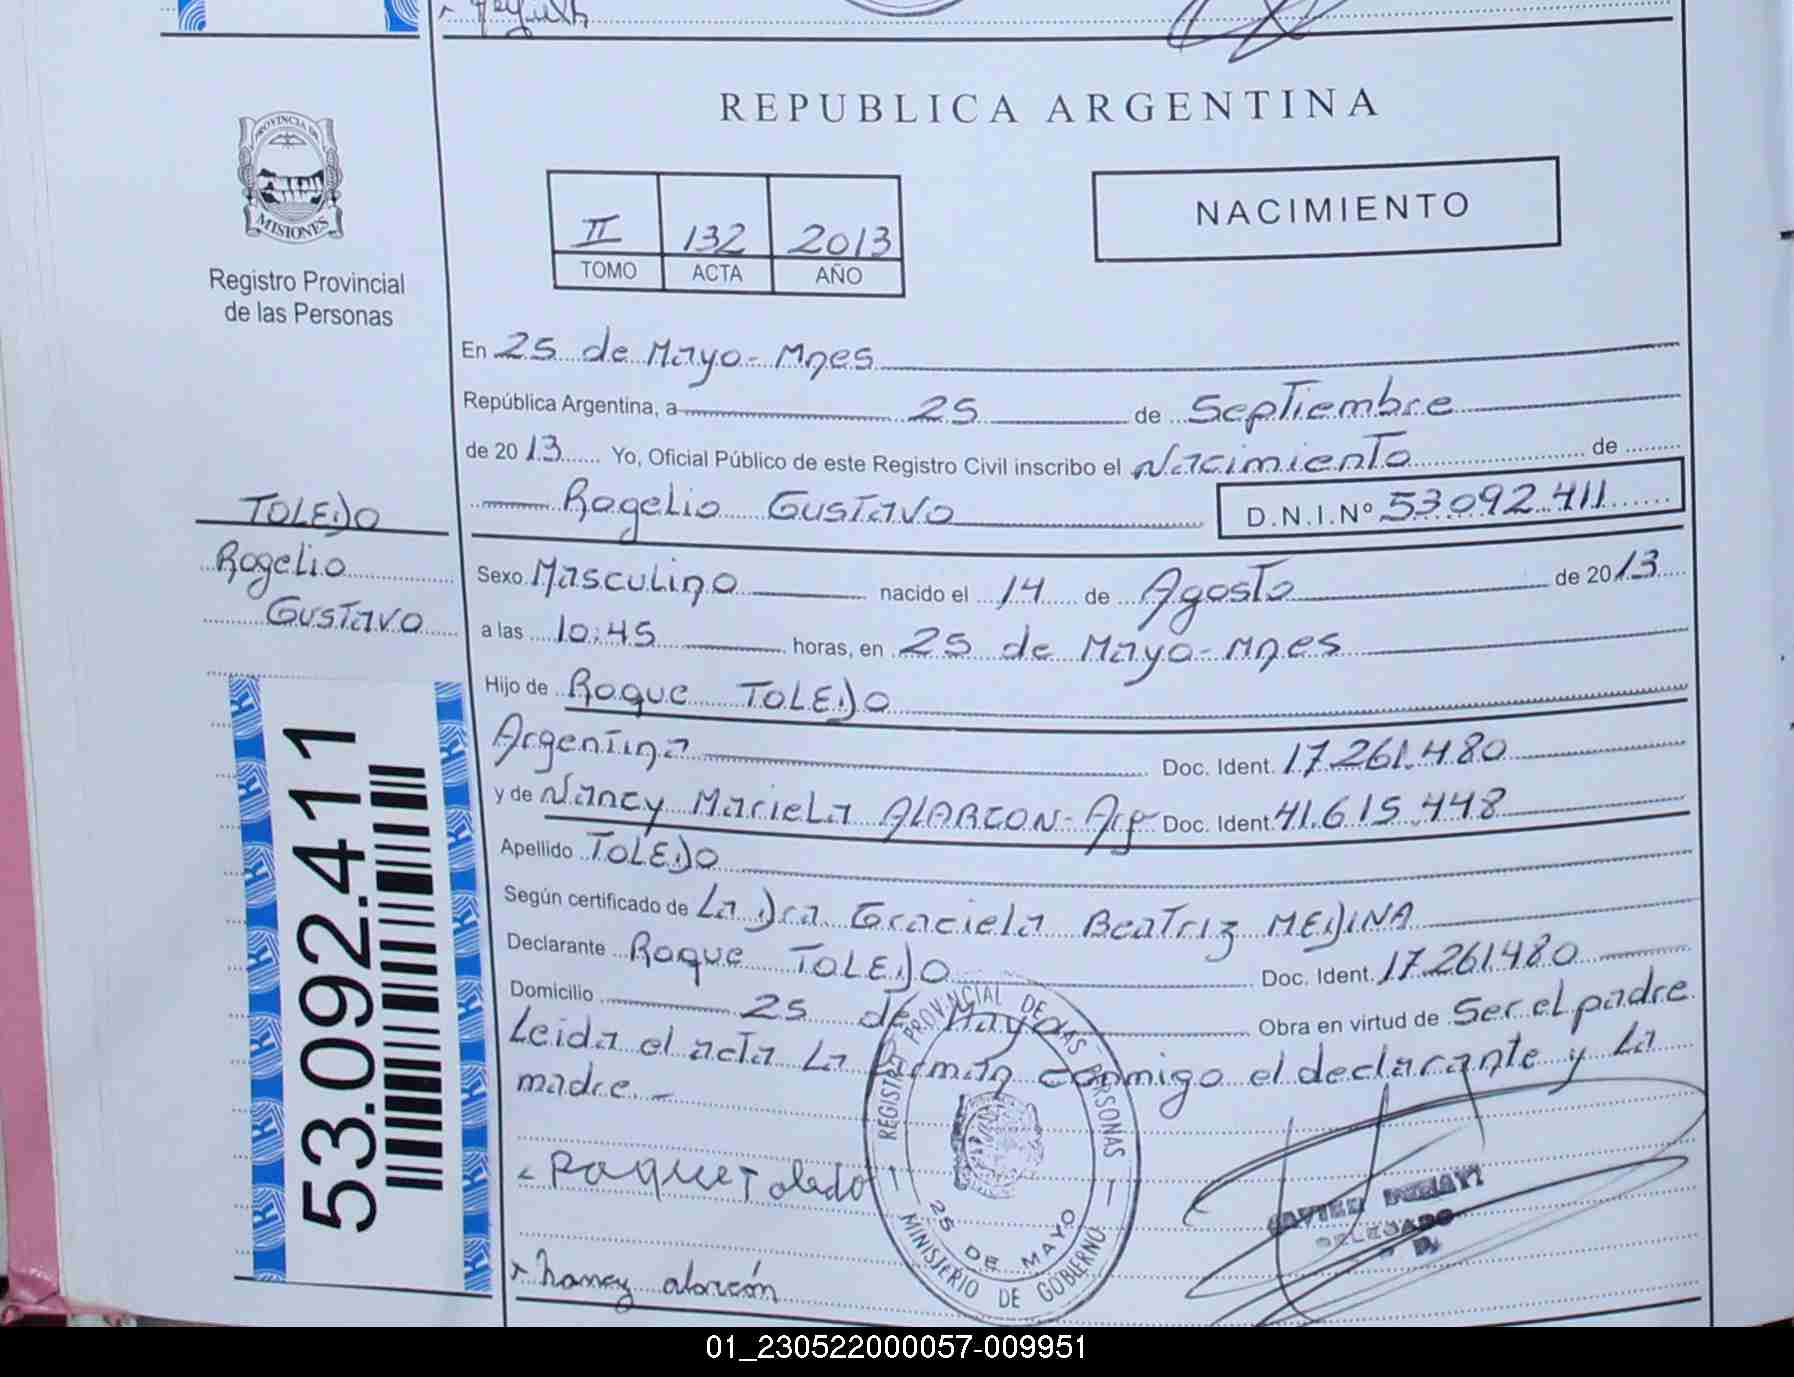 REPUBLICA ARGENTINA
PROVINCIA DE
MISIONES
Registro Provincial
de las Personas
II 132 2013
TOMO ACTA AÑO
NACIMIENTO
En 25 de Mayo - Mnes
República Argentina, a 25 de Septiembre
de 2013 Yo, Oficial Público de este Registro Civil inscribo el Nacimiento de
Rogelio Gustavo D.N.I.Nº 53092411
TOLEDO
Rogelio
Gustavo
Sexo Masculino nacido el 14 de Agosto de 2013
a las 10:45 horas, en 25 de Mayo - Mnes
Hijo de Roque TOLEDO
Argentina Doc. Ident. 17.261.480
y de Nancy Mariela ALARCON - Arg Doc. Ident. 41.615.448
Apellido TOLEDO
Según certificado de La Dra Graciela Beatriz MEDINA
Declarante Roque TOLEDO Doc. Ident. 17.261.480
Domicilio 25 de Mayo Obra en virtud de Ser el padre
Leida el acta La firman conmigo el declarante y La
madre.-
53.092.411
Roque Toledo
nancy alarcón
REGISTRO PROVINCIAL DE LAS PERSONAS
25 DE MAYO
MINISTERIO DE GOBIERNO
DELEGADO
01_230522000057-009951